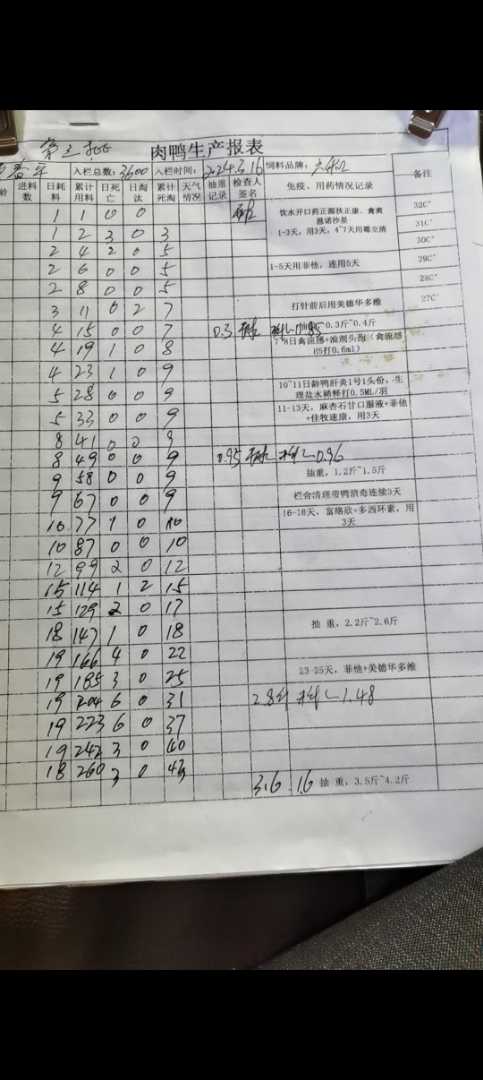 第三批 肉鸭生产报表
入栏总数: 3600 入栏时间: 2024.3.16 饲料品牌: 六和
龄 进料数 日耗料 累计用料 日死亡 日淘汰 累计死淘 天气情况 抽重记录 检查人签名 免疫、用药情况记录 备注
1 1 0 0 32C°
饮水开口药正源扶正康、禽禽
1 2 3 0 3 1-3天,用3天,4~7天用霉立清 31C°
2 4 2 0 5 30C°
2 6 0 0 5 1-5天用菲他,连用5天 29C°
2 8 0 0 5 28C°
3 11 0 2 7 打针前后用美德华多维 27C°
4 15 0 0 7 0.3 0.3斤~0.4斤
4 19 1 0 8 7~8日禽流感+浪潮头孢(禽流感
H5打0.6ml)
4 23 1 0 9
5 28 0 0 9 10~11日龄鸭肝炎1号1头份,生
理盐水稀释打0.5ML/羽
5 33 0 0 9 11-13天,麻杏石甘口服液+菲他
+佳牧速康,用3天
8 41 0 0 9
8 49 0 0 9 0.95 料比0.96
9 58 0 0 9 抽重,1.2斤~1.5斤
9 67 0 0 9 栏舍清理带鸭消毒连续3天
10 77 1 0 10 16-18天,富络欣+多西环素,用
3天
10 87 0 0 10
12 99 2 0 12
15 114 1 2 15
15 129 2 0 17
18 147 1 0 18 抽重,2.2斤~2.6斤
19 166 4 0 22
19 185 3 0 25 23-25天,菲他+美德华多维
19 204 6 0 31 2.8斤 料比1.48
19 223 6 0 37
19 242 3 0 40
18 260 3 0 43
3.6 1.6 抽重,3.5斤~4.2斤